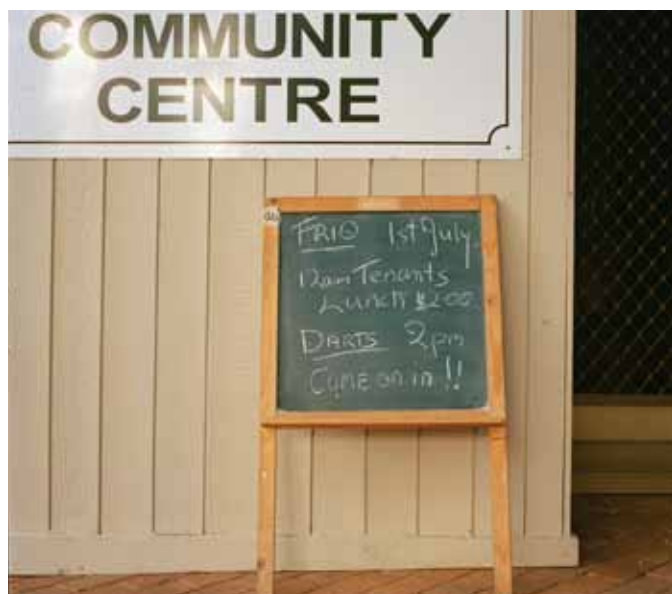 COMMUNITY
CENTRE
FRID 1st July
12am Tenants
Lunch $2.00
DARTS 2pm
COME on in!!